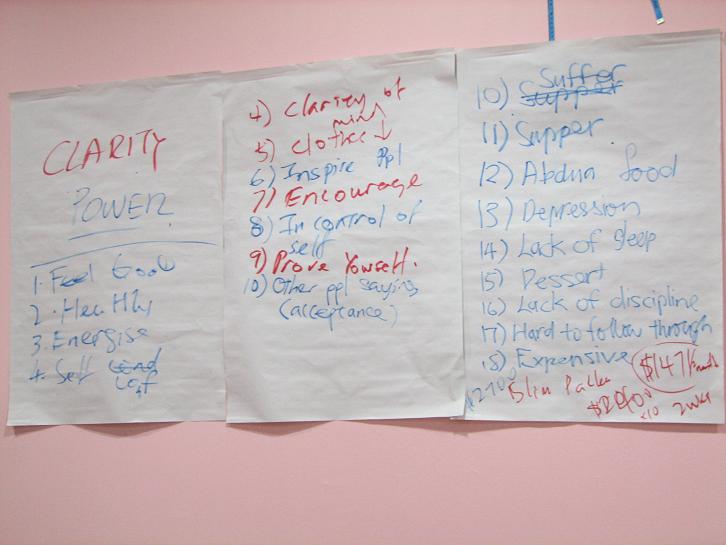 CLARITY
POWER
1. Feel Good
2. Healthy
3. Energise
4. Self
4) Clarity of
mind
5) Clothes ↓
6) Inspire Ppl
7) Encourage
8) In control of
self
9) Prove Yourself.
10) Other ppl saying
(acceptance)
10) Suffer
11) Supper
12) Abdun food
13) Depression
14) Lack of Sleep
15) Dessert
16) Lack of discipline
17) Hard to follow through
18) Expensive $147/month
$2700 Slim
2 wks